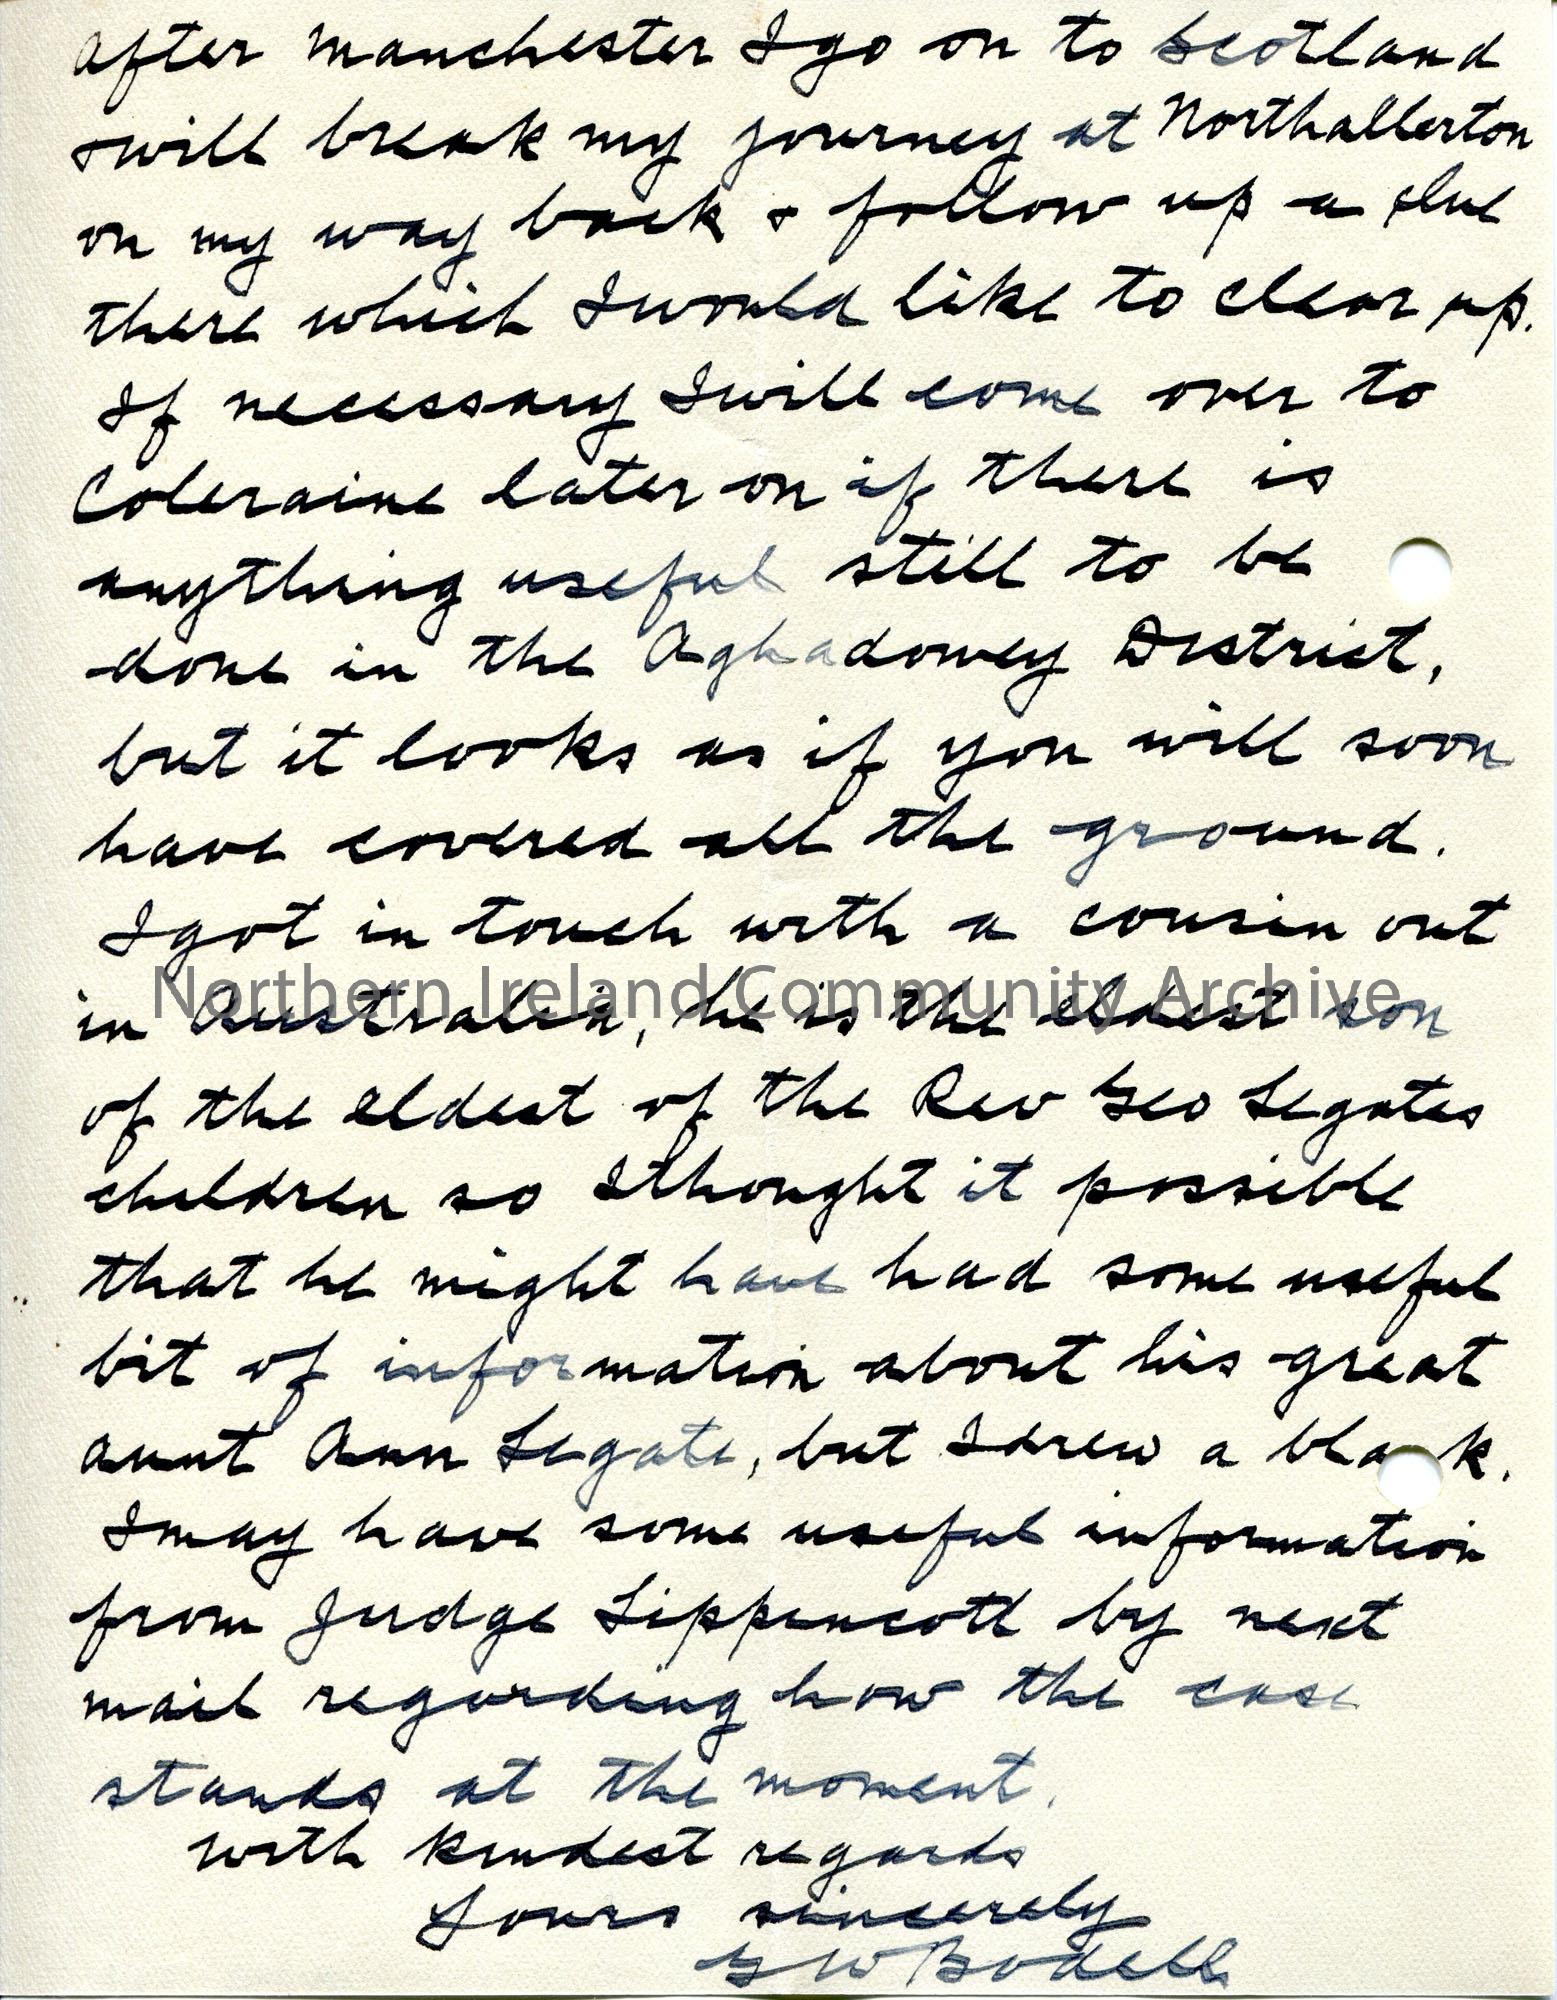 After Manchester I go on to Scotland
& will break my journey at Northallerton
on my way back & follow up a clue
there which I would like to clear up.
If necessary I will come over to
Coleraine later on if there is
anything useful still to be
done in the Aghadowey District,
but it looks as if you will soon
have covered all the ground.
I got in touch with a cousin out
in Australia, he is the eldest son
Northern Ireland Community Archive
of the eldest of the Rev Geo Legates
children so I thought it possible
that he might have had some useful
bit of information about his great
aunt Ann Legate, but I drew a blank.
I may have some useful information
from Judge Lippencott by next
mail regarding how the case
stands at the moment.
With kindest regards
Yours sincerely
G W Bodell